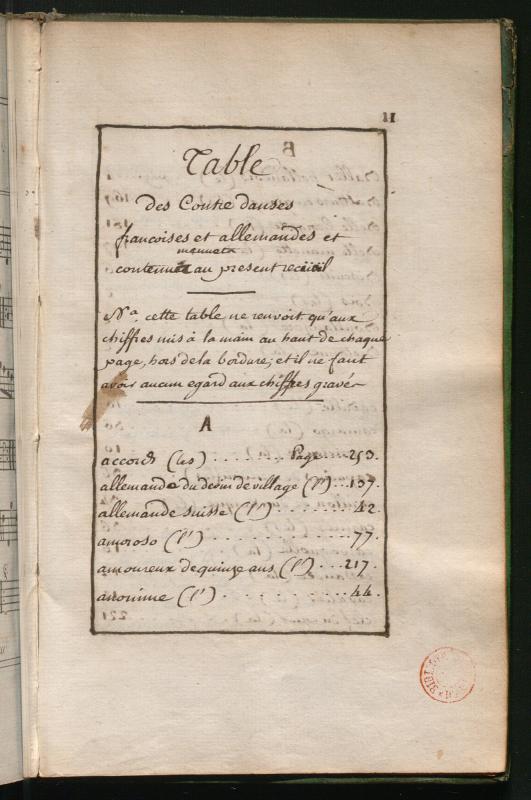 11
Table
des Contre danses
francoises et allemandes et
menuets
contenues au present recüeil
Nᵃ. cette table ne renvoit qu'aux
chiffres mis à la main au haut de chaque
page, hors de la bordure; et il ne faut
avoir aucun egard aux chiffres gravés
A
accords (les) . . . . . . . Page . . 253.
allemande du devin de village (l') . . . 137.
allemande suisse (l') . . . . . . . 42
amoroso (l') . . . . . . . . . . . 77.
amoureux de quinze ans (l') . . . 217.
anonime (l') . . . . . . . . . 44.